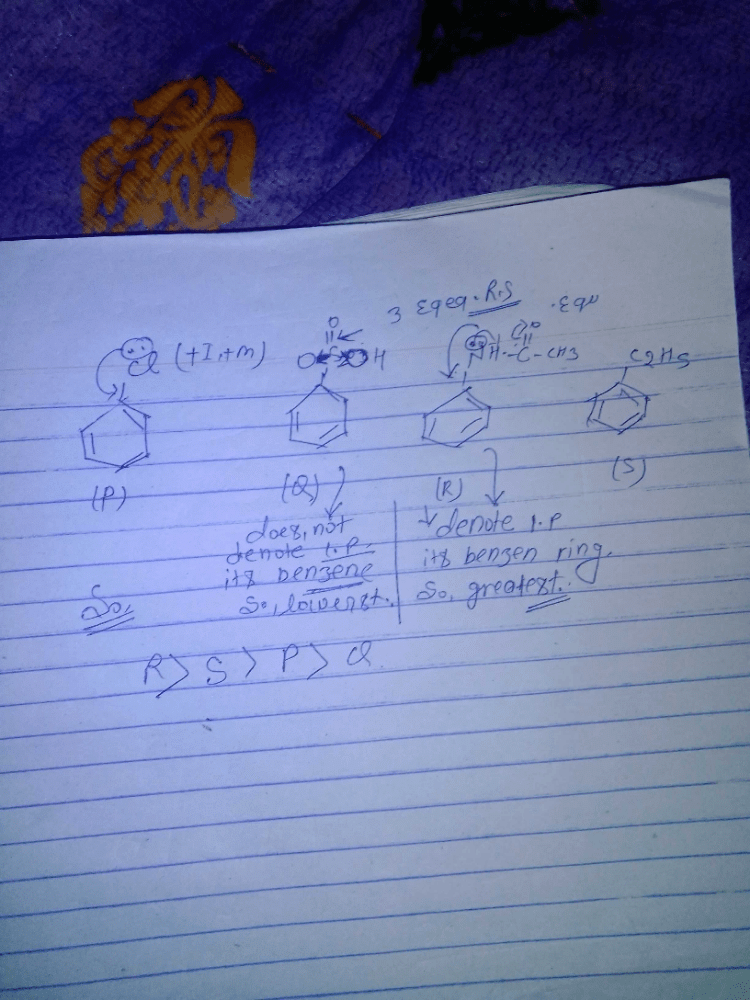 3 Eqeq. R.S .Equ
Cl (+I,+m)
O
O S OH
NH-C-CH3
O
C2H5
(P) (Q) (R) (S)
does, not
denote l.p.
its benzene
So, lowerst.
↓ denote l.p
its benzen ring.
So, greatest.
So,
R > S > P > Q